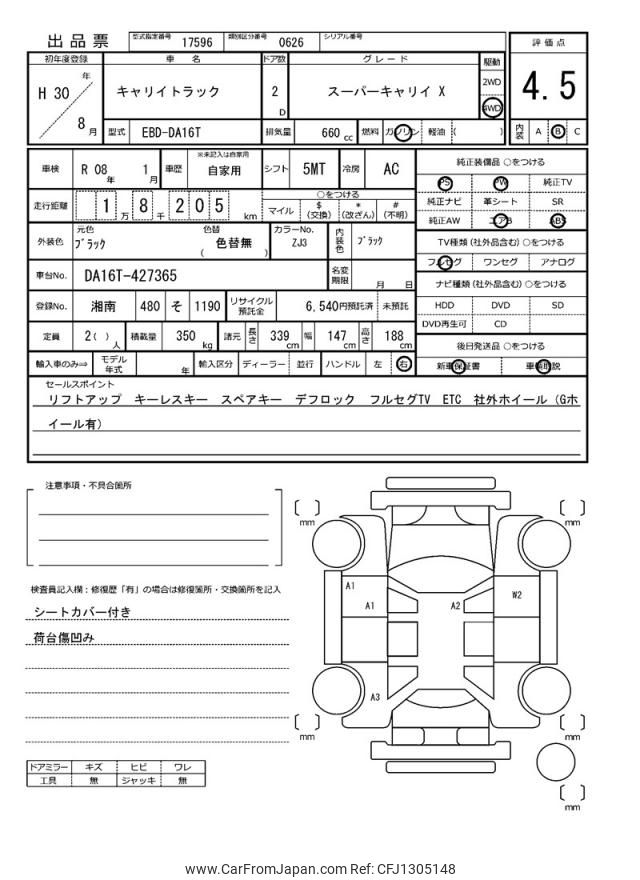 出品票 型式指定番号 17596 類別区分番号 0626 シリアル番号
初年度登録 車 名 ドア数 グレード 駆動 評価点
H 30 年 8 月 キャリイトラック 2 D スーパーキャリイ X 2WD 4WD 4.5
型式 EBD-DA16T 排気量 660 cc 燃料 ガソリン 軽油 ( ) 内装 A B C
車検 R 08 年 1 月 車歴 ※未記入は自家用 自家用 シフト 5MT 冷房 AC
走行距離 1 万 8 千 2 0 5 km ○をつける マイル $ (交換) * (改ざん) # (不明)
外装色 元色 ブラック 色替 色替無 ( ) カラーNo. ZJ3 内装色 ブラック
車台No. DA16T-427365 名変期限 月 日
登録No. 湘南 480 そ 1190 リサイクル預託金 6,540円預託済 未預託
定員 2( ) 人 積載量 350 kg 諸元 長さ 339 cm 幅 147 cm 高さ 188 cm
輸入車のみ⇒ モデル年式 年 輸入区分 ディーラー 並行 ハンドル 左 右
純正装備品 ○をつける
PS PW 純正TV
純正ナビ 革シート SR
純正AW エアB ABS
TV種類 (社外品含む) ○をつける
フルセグ ワンセグ アナログ
ナビ種類 (社外品含む) ○をつける
HDD DVD SD
DVD再生可 CD
後日発送品 ○をつける
新車保証書 車輌取説
セールスポイント
リフトアップ キーレスキー スペアキー デフロック フルセグTV ETC 社外ホイール (Gホ
イール有)
注意事項・不具合箇所
検査員記入欄：修復歴「有」の場合は修復箇所・交換箇所を記入
シートカバー付き
荷台傷凹み
ドアミラー キズ ヒビ ワレ
工具 無 ジャッキ 無
[ ] mm [ ] mm
A1
A1 A2 W2
A3
[ ] mm [ ] mm
[ ] mm
www.CarFromJapan.com Ref: CFJ1305148